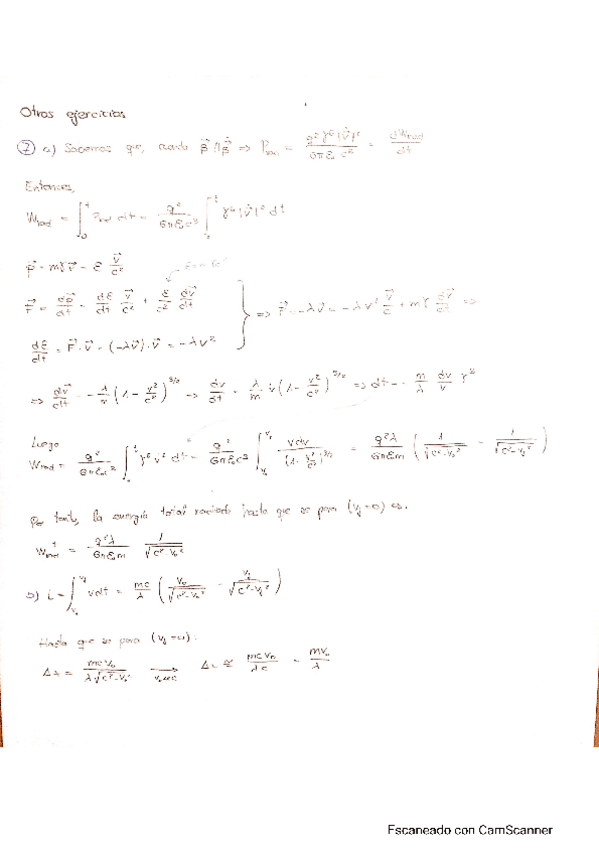 Otros ejercicios
7 a) Sabemos que, cuando β⃗ ∥ β⃗̇ ⇒ P_rad = q² γ⁶ |v̇|² / 6πε₀c³ = dW_rad/dt
Entonces,
W_rad = ∫₀ᵗ P_rad dt = q² / 6πε₀c³ ∫ γ⁶ |v̇|² dt
p⃗ = mγv⃗ = ε v⃗/c²
F⃗ = dp⃗/dt = dε/dt v⃗/c² + ε/c² dv⃗/dt
⇒ F⃗ = -λv⃗ = -λv² v⃗/c + mγ dv⃗/dt ⇒
dε/dt = F⃗·v⃗ = (-λv⃗)·v⃗ = -λv²
⇒ dv⃗/dt = -λ/m (1 - v²/c²)^3/2 ⇒ dv/dt = λ/m v (1 - v²/c²)^3/2 ⇒ dt = - m/λ dv/v γ³
Luego
W_rad = ∫ γ⁶ v² dt = ∫ v dv / (1 - v²/c²)^3/2 = q²λ / 6πε₀m (1/√(c²-v₀²) - 1/√(c²-v_f²))
Por tanto, la energía total radiada hasta que se para (v_f = 0) es.
W_rad = q²λ / 6πε₀m 1/√(c²-v₀²)
b) L = ∫ v dt = mc/λ (v₀/√(c²-v₀²) - v_f/√(c²-v_f²))
Hasta que se para (v_f = 0):
mcv₀ / λ√(c²-v₀²) → v₀≪c ≅ mcv₀/λc = mv₀/λ
Escaneado con CamScanner